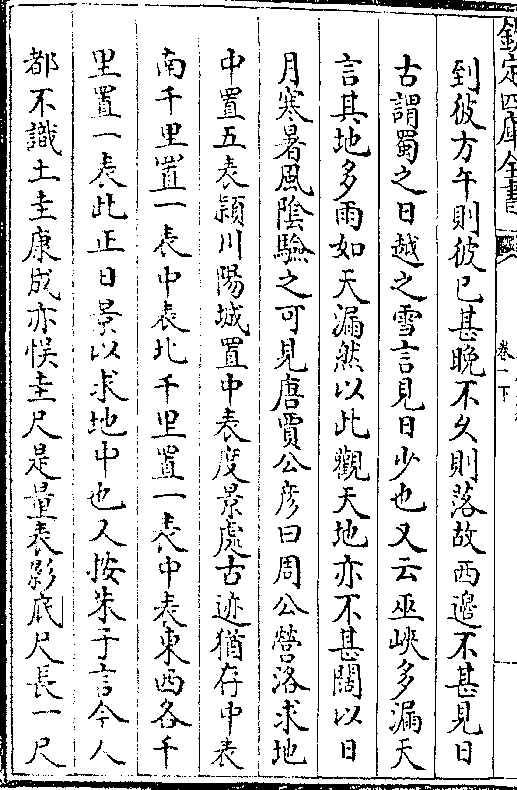 欽定四庫全書
卷一下
到彼方午則彼已甚晚不久則落故西邉不甚見日
古謂蜀之日越之雪言見日少也又云巫峽多漏天
言其地多雨如天漏然以此觀天地亦不甚闊以日
月寒暑風隂驗之可見唐賈公彦曰周公營洛求地
中置五表潁川陽城置中表度景處古迹猶存中表
南千里置一表中表北千里置一表中表東西各千
里置一表此正日景以求地中也又按朱子言今人
都不識土圭康成亦悞圭尺是量表影底尺長一尺